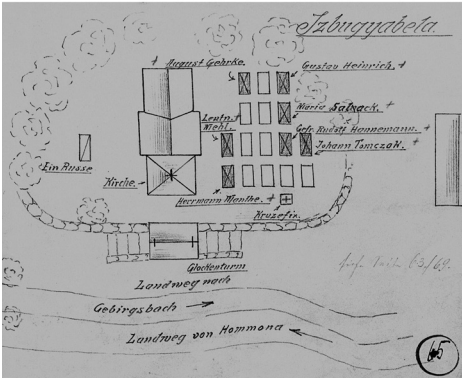 Izbugyabela.
+ August Gehrke.
Gustav Heinrich. +
Leutn.
Mehl. +
Maria Salzack. +
Gefr. Rudolf Hannemann. +
Johann Tomczak. +
Ein Russe
Kirche.
Herrmann Manthe. +
Kruzefix.
Glockenturm
Landweg nach
Gebirgsbach
Landweg von Hommona
siehe Seite 63/69.
65